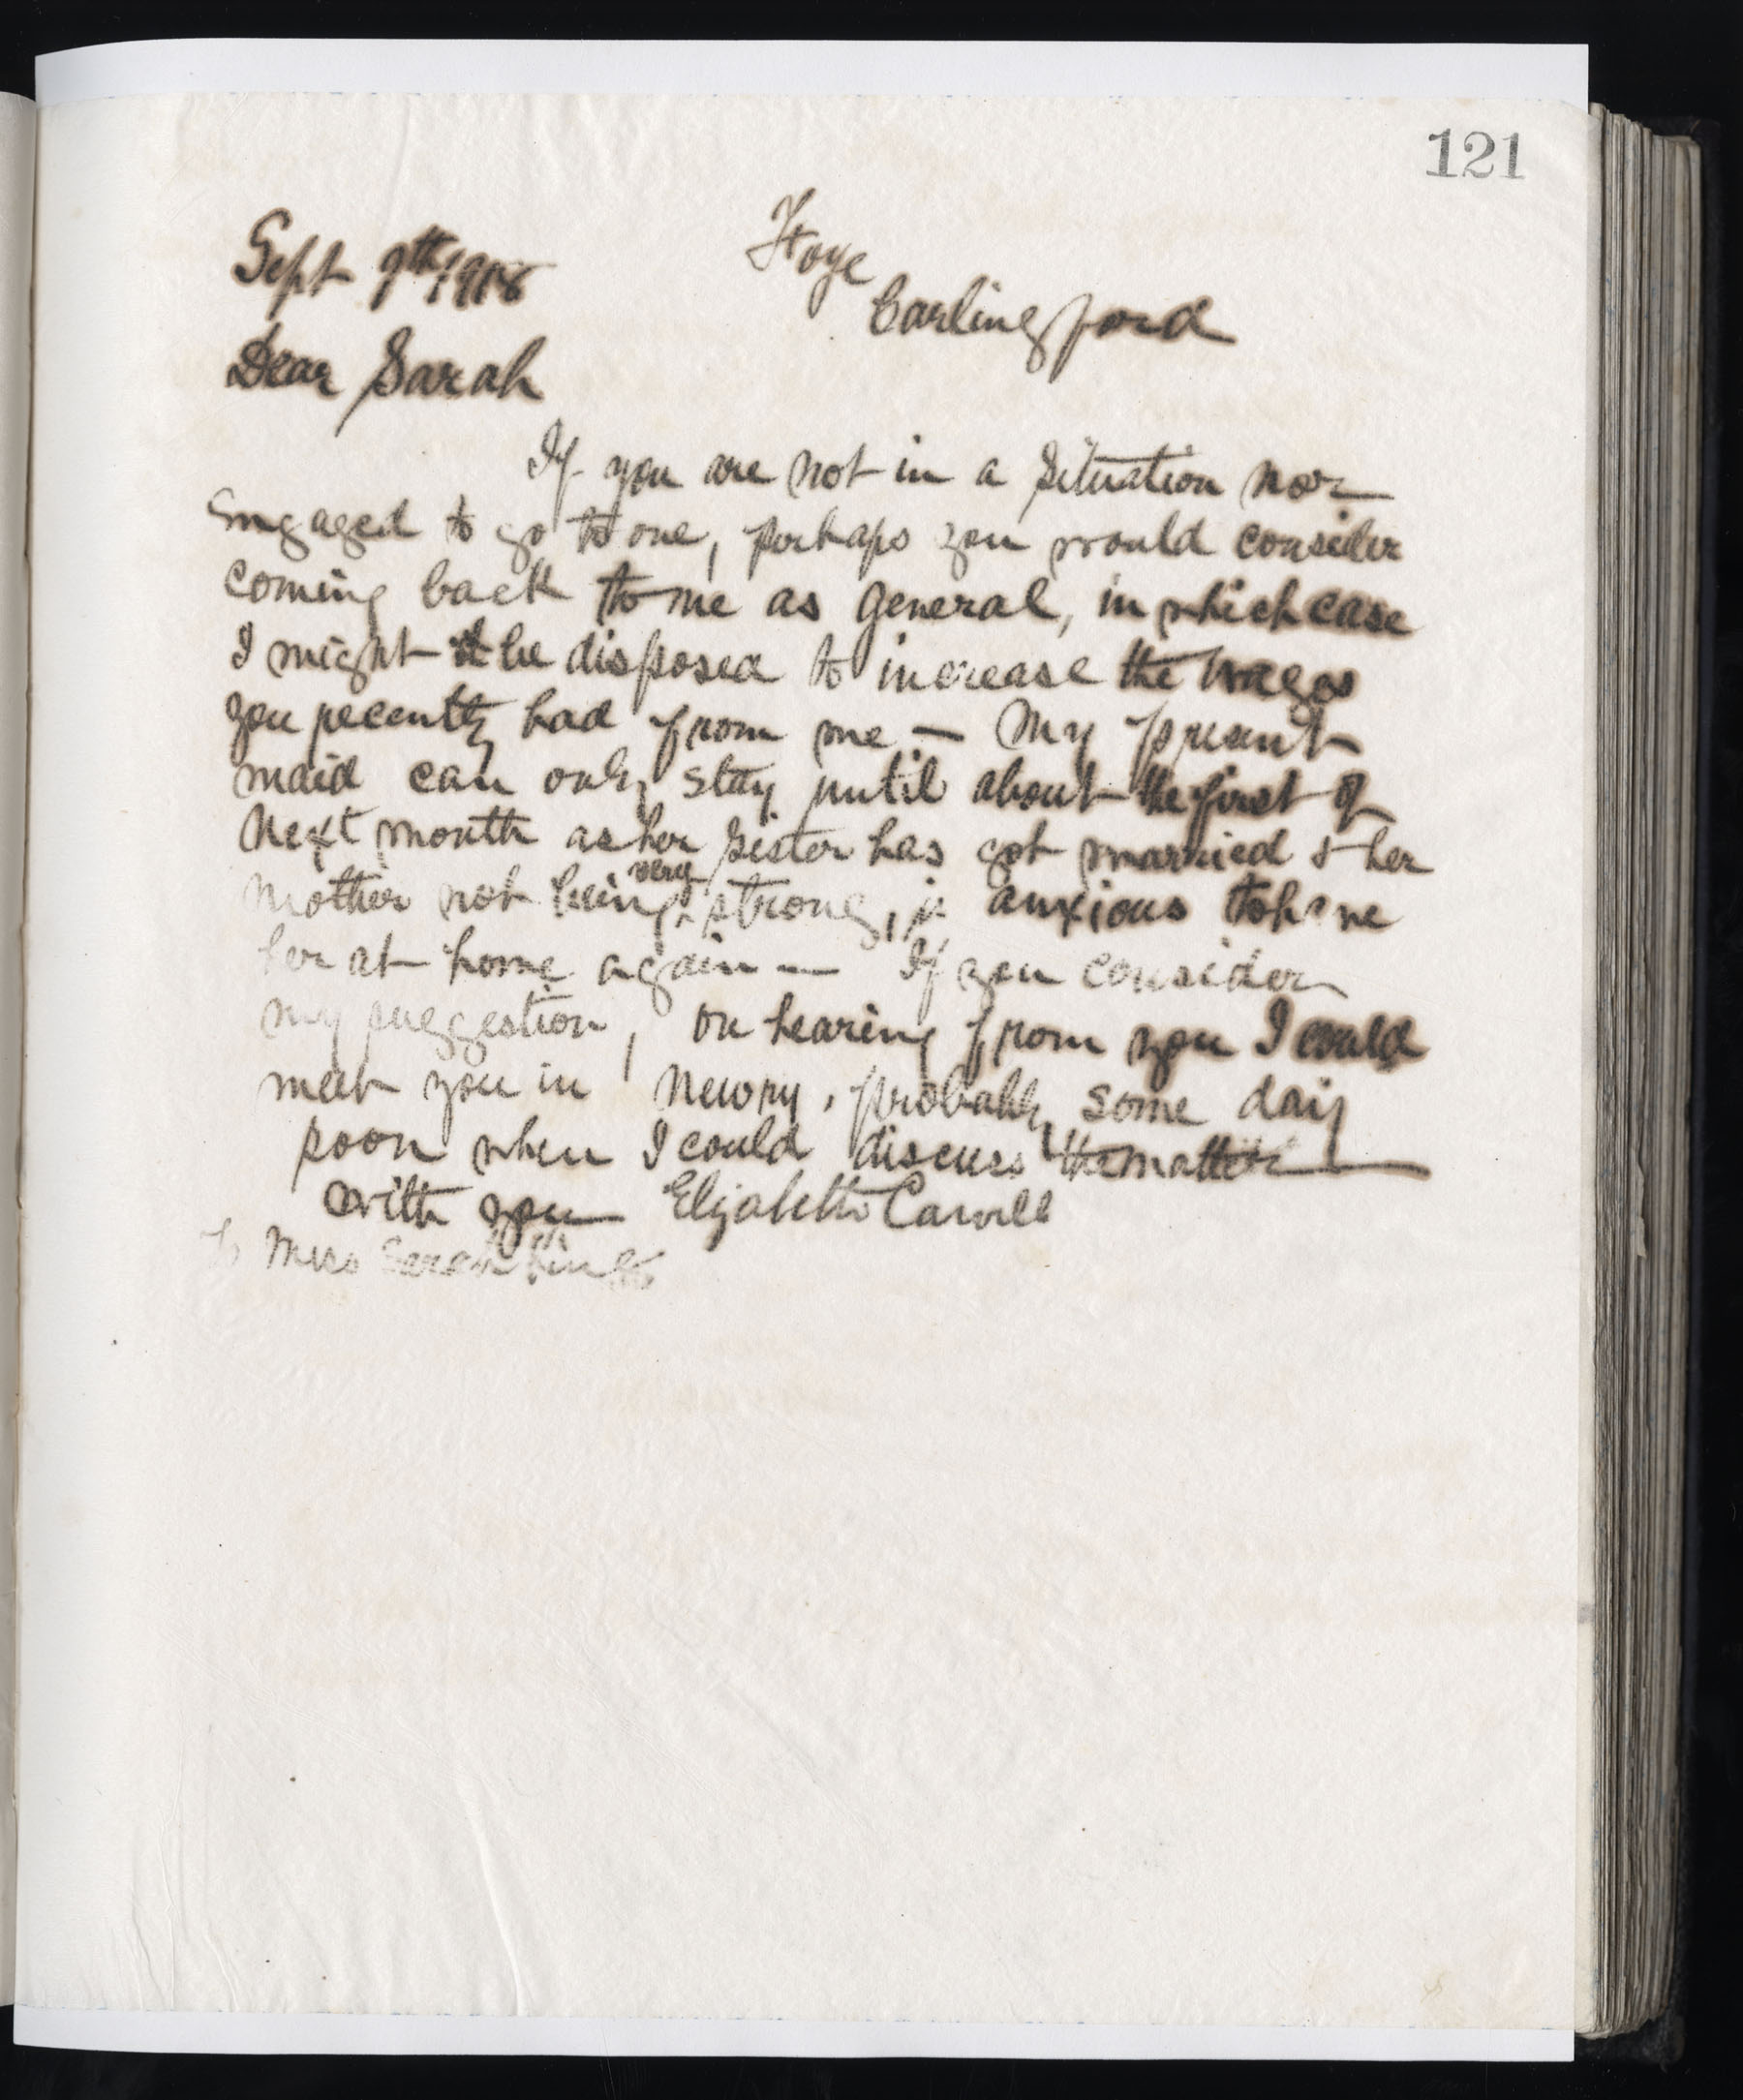 121
Sept 9th/1918
Foye
Carlingford
Dear Sarah
If you are not in a situation nor
Engaged to go to one, perhaps you would consider
coming back to me as general, in which case
I might be disposed to increase the wages
you recently had from me — My present
maid can only stay until about the first of
Next month as her sister has got married & her
very
Mother not being strong, is anxious to have
her at home again — If you consider
my suggestion, on hearing from you I could
meet you in Newry, probably some day
soon when I could discuss the matter
with you Elizabeth Carvill
To Miss Sarah